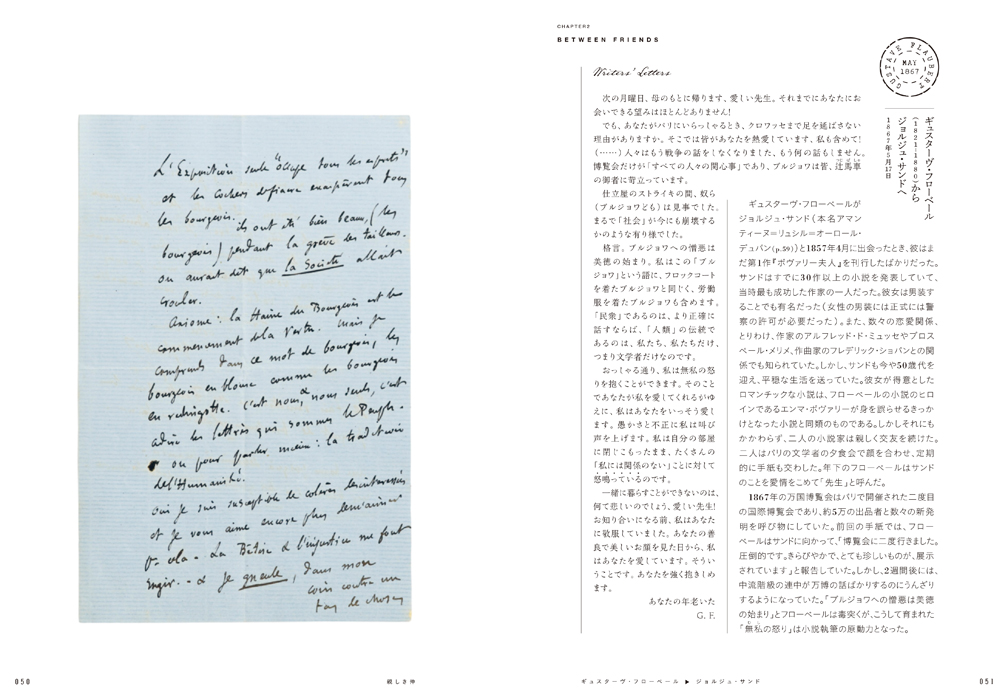 L'Exposition seule "occupe tous les esprits"
et les cochers de fiacre exaspèrent tous
les bourgeois. ils ont été bien beaux, (les
bourgeois) pendant la grève des tailleurs.
on aurait dit que la Société allait
crouler.
Axiome : la Haine du Bourgeois est le
commencement de la Vertu. mais je
comprends dans ce mot de bourgeois, les
bourgeois en blouse comme les bourgeois
en redingotte. C'est nous, & nous seuls, c'est
à dire les lettrés qui sommes le Peuple.
ou pour parler mieux : la tradition
de l'Humanité.
oui je suis susceptible de colères désintéressées
et je vous aime encore plus de m'aimer
pr cela. La Bêtise & l'injustice me font
rugir. - & je gueule, dans mon
coin contre un
tas de choses
050
親しき仲
CHAPTER2
BETWEEN FRIENDS
Writers' Letters
GUSTAVE FLAUBERT
MAY
1867
ギュスターヴ・フローベール
(1821-1880)から
ジョルジュ・サンドへ
1867年5月17日
次の月曜日、母のもとに帰ります、愛しい先生。それまでにあなたにお
会いできる望みはほとんどありません!
でも、あなたがパリにいらっしゃるとき、クロワッセまで足を延ばさない
理由がありますか。そこでは皆があなたを熱愛しています、私も含めて!
(……)人々はもう戦争の話をしなくなりました、もう何の話もしません。
博覧会だけが「すべての人々の関心事」であり、ブルジョワは皆、辻馬車
の御者に苛立っています。
仕立屋のストライキの間、奴ら
(ブルジョワども)は見事でした。
まるで「社会」が今にも崩壊する
かのような有り様でした。
格言。ブルジョワへの憎悪は
美徳の始まり。私はこの「ブル
ジョワ」という語に、フロックコート
を着たブルジョワと同じく、労働
服を着たブルジョワも含めます。
「民衆」であるのは、より正確に
話すならば、「人類」の伝統で
あるのは、私たち、私たちだけ、
つまり文学者だけなのです。
おっしゃる通り、私は無私の怒
りを抱くことができます。そのこと
であなたが私を愛してくれるがゆ
えに、私はあなたをいっそう愛し
ます。愚かさと不正に私は叫び
声を上げます。私は自分の部屋
に閉じこもったまま、たくさんの
「私には関係のない」ことに対して
怒鳴っているのです。
一緒に暮らすことができないのは、
何て悲しいのでしょう、愛しい先生!
お知り合いになる前、私はあなた
に敬服していました。あなたの善
良で美しいお顔を見た日から、私
はあなたを愛しています。そうい
うことです。あなたを強く抱きしめ
ます。
あなたの年老いた
G. F.
ギュスターヴ・フローベールが
ジョルジュ・サンド(本名アマン
ティーヌ=リュシル=オーロール・
デュパン(p.59))と1857年4月に出会ったとき、彼はま
だ第1作『ボヴァリー夫人』を刊行したばかりだった。
サンドはすでに30作以上の小説を発表していて、
当時最も成功した作家の一人だった。彼女は男装す
ることでも有名だった(女性の男装には正式には警
察の許可が必要だった)。また、数々の恋愛関係、
とりわけ、作家のアルフレッド・ド・ミュッセやプロス
ペール・メリメ、作曲家のフレデリック・ショパンとの関
係でも知られていた。しかし、サンドも今や50歳代を
迎え、平穏な生活を送っていた。彼女が得意とした
ロマンチックな小説は、フローベールの小説のヒロ
インであるエンマ・ボヴァリーが身を誤らせるきっか
けとなった小説と同類のものである。しかしそれにも
かかわらず、二人の小説家は親しく交友を続けた。
二人はパリの文学者の夕食会で顔を合わせ、定期
的に手紙も交わした。年下のフローベールはサンド
のことを愛情をこめて「先生」と呼んだ。
1867年の万国博覧会はパリで開催された二度目
の国際博覧会であり、約5万の出品者と数々の新発
明を呼び物にしていた。前回の手紙では、フロー
ベールはサンドに向かって、「博覧会に二度行きました。
圧倒的です。きらびやかで、とても珍しいものが、展示
されています」と報告していた。しかし、2週間後には、
中流階級の連中が万博の話ばかりするのにうんざり
するようになっていた。「ブルジョワへの憎悪は美徳
の始まり」とフローベールは毒突くが、こうして育まれた
「無私の怒り」は小説執筆の原動力となった。
ギュスターヴ・フローベール ▶ ジョルジュ・サンド
051